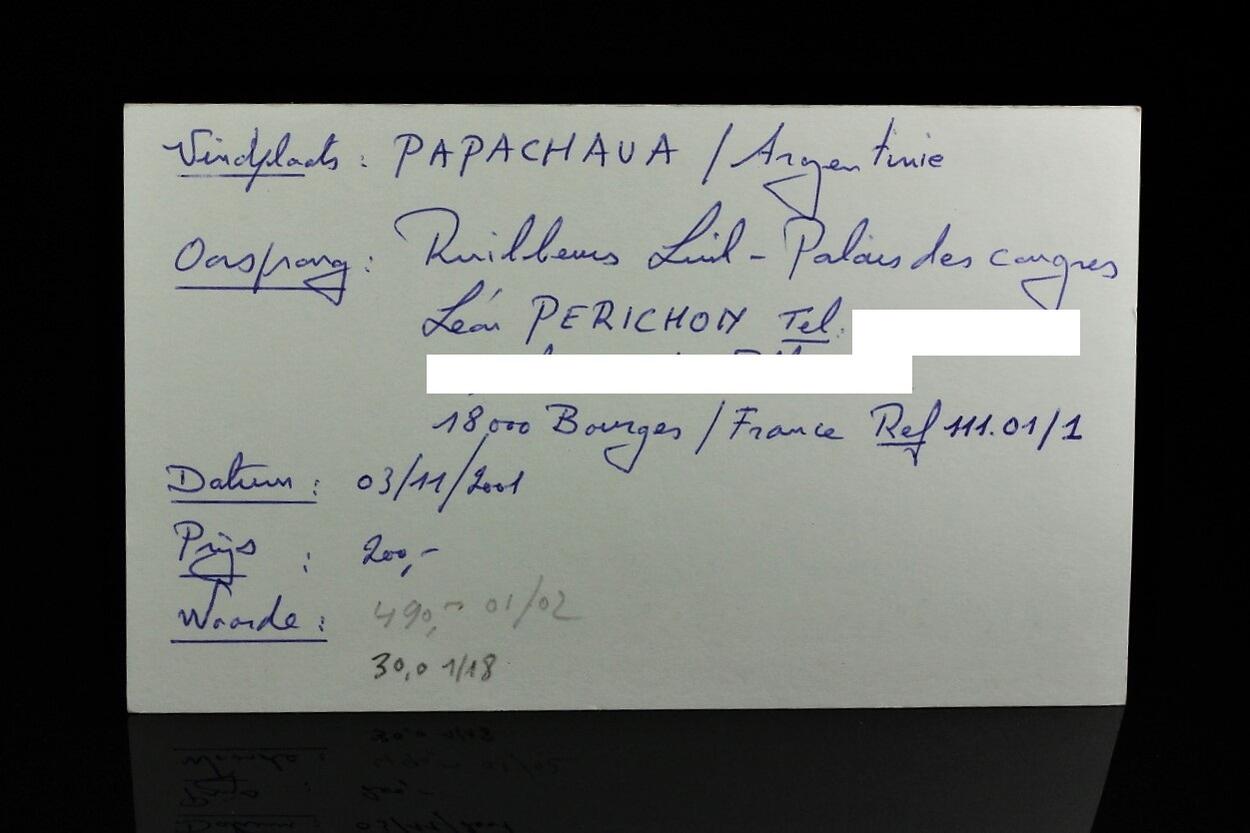 Vindplaats : PAPACHAUA / Argentinie
Oorsprong : Ruilbeurs Luik - Palais des congres
Léon PERICHON Tel.
18000 Bourges / France Ref 111.01/1
Datum : 03/11/2001
Prijs : 200,-
Waarde : 490,- 01/02
30,0 1/18